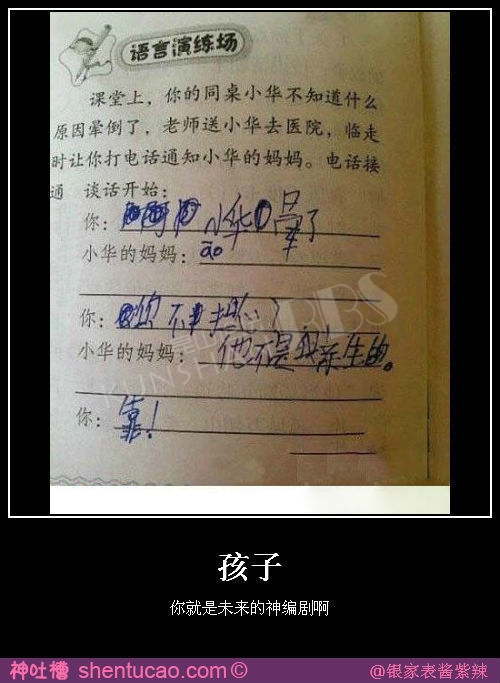 语言演练场
课堂上，你的同桌小华不知道什么
原因晕倒了，老师送小华去医院，临走
时让你打电话通知小华的妈妈。电话接
通 谈话开始：
你： 小华晕了
小华的妈妈： āo
你： 你不担心？
小华的妈妈： 他不是我亲生的。
你： 靠！
BBS
孩子
你就是未来的神编剧啊
神吐槽 shentucao.com© @银家表酱紫辣